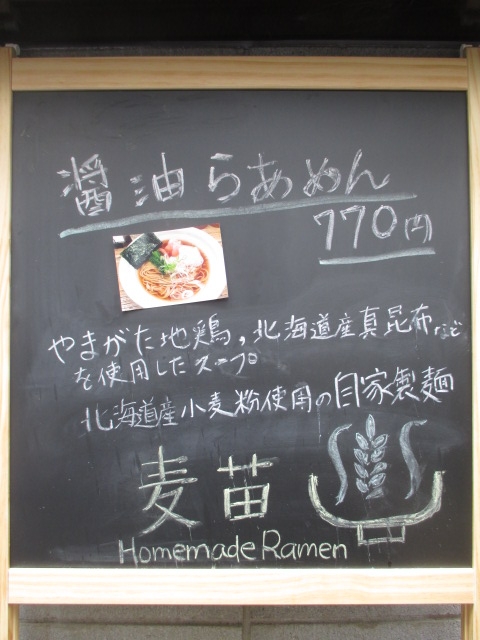 醤油らあめん
770円
やまがた地鶏,北海道産真昆布など
を使用したスープ
北海道産小麦粉使用の自家製麺
麦苗
Homemade Ramen